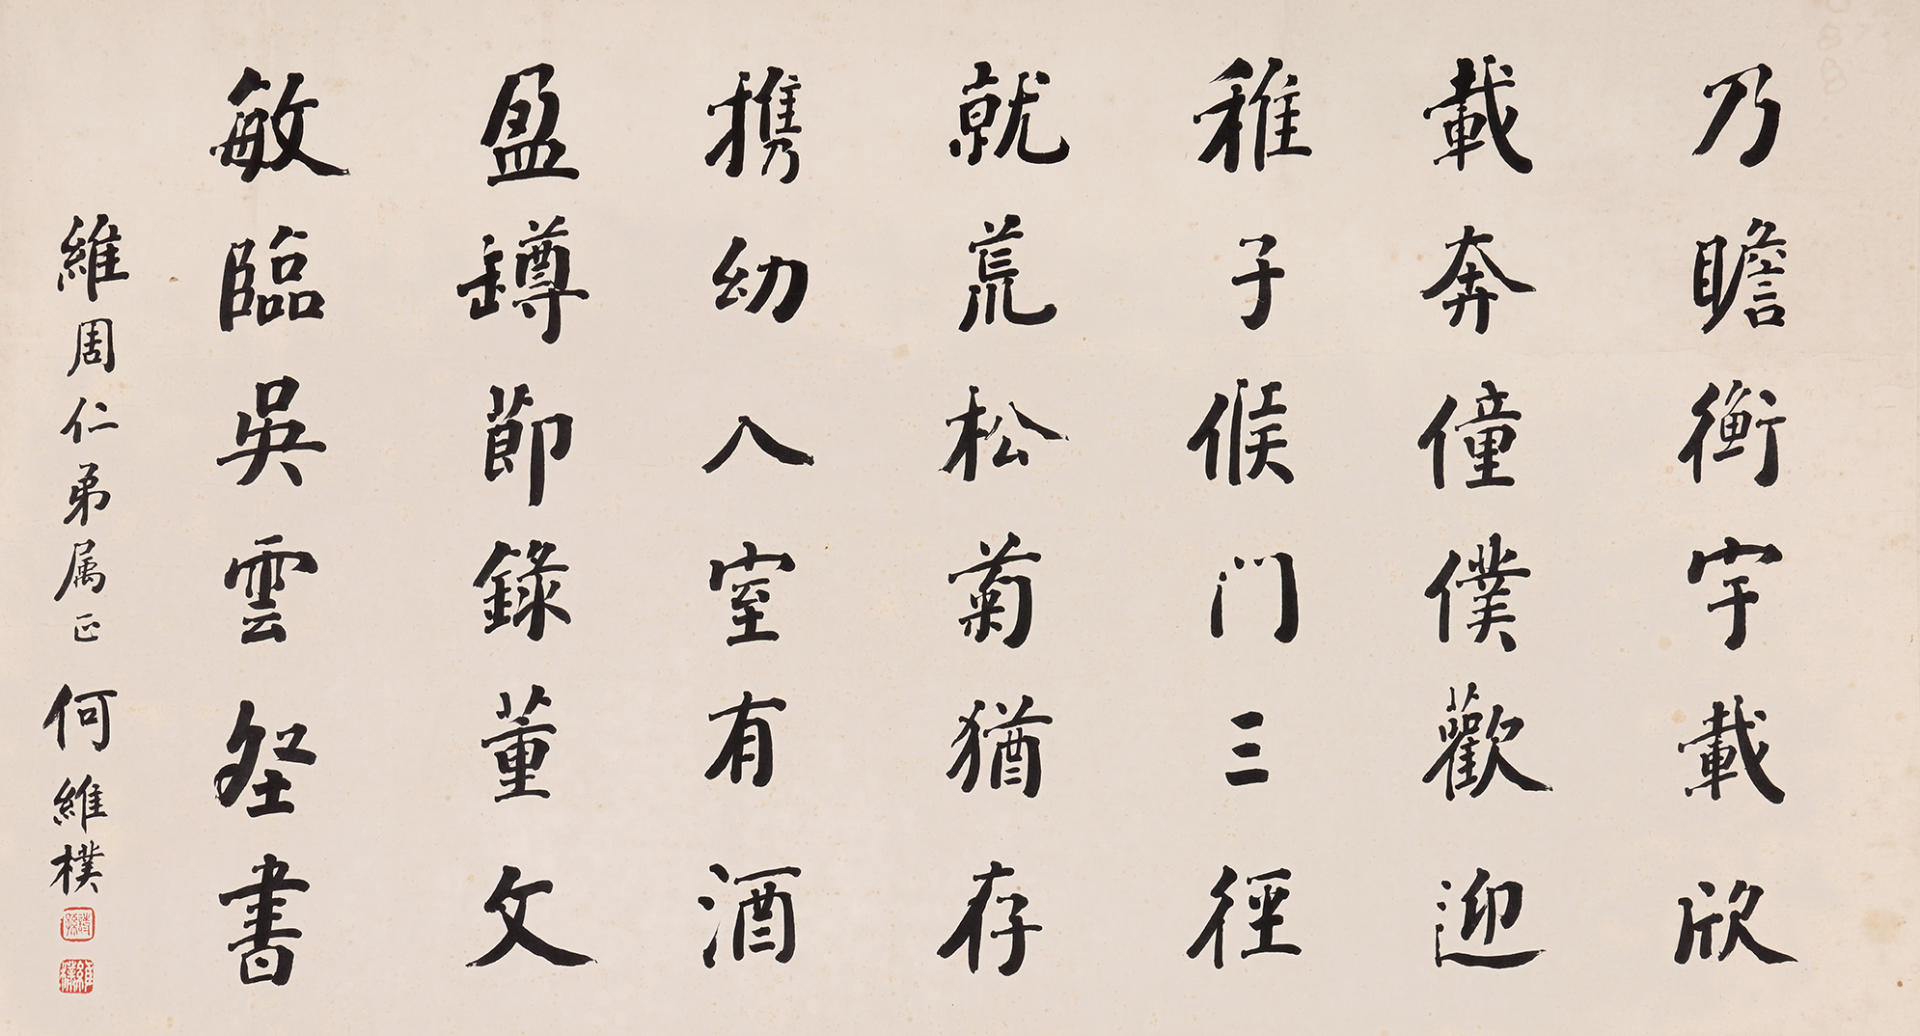 乃瞻衡宇載欣
載奔僮僕歡迎
稚子候門三徑
就荒松菊猶存
携幼入室有酒
盈罇節錄董文
敏臨吳雲壑書
維周仁弟属正 何維樸
詩孫
維樸